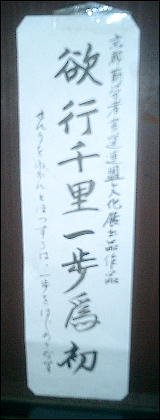 京都勤労者書道連盟文化展出品作品
欲行千里一歩為初
せんりをゆかんとほっするは、一歩をはじめとなす